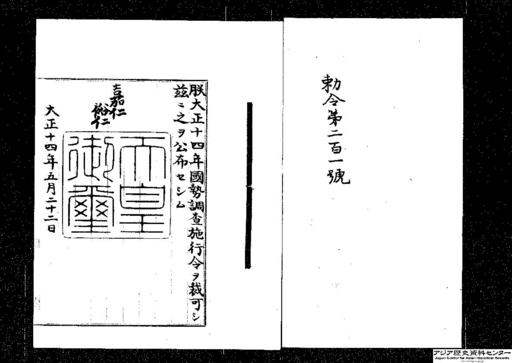 勅令第二百一號
朕大正十四年國勢調査施行令ヲ裁可シ
茲ニ之ヲ公布セシム
嘉仁
裕仁
天皇
御璽
大正十四年五月二十二日
アジア歴史資料センター
Japan Center for Asian Historical Records